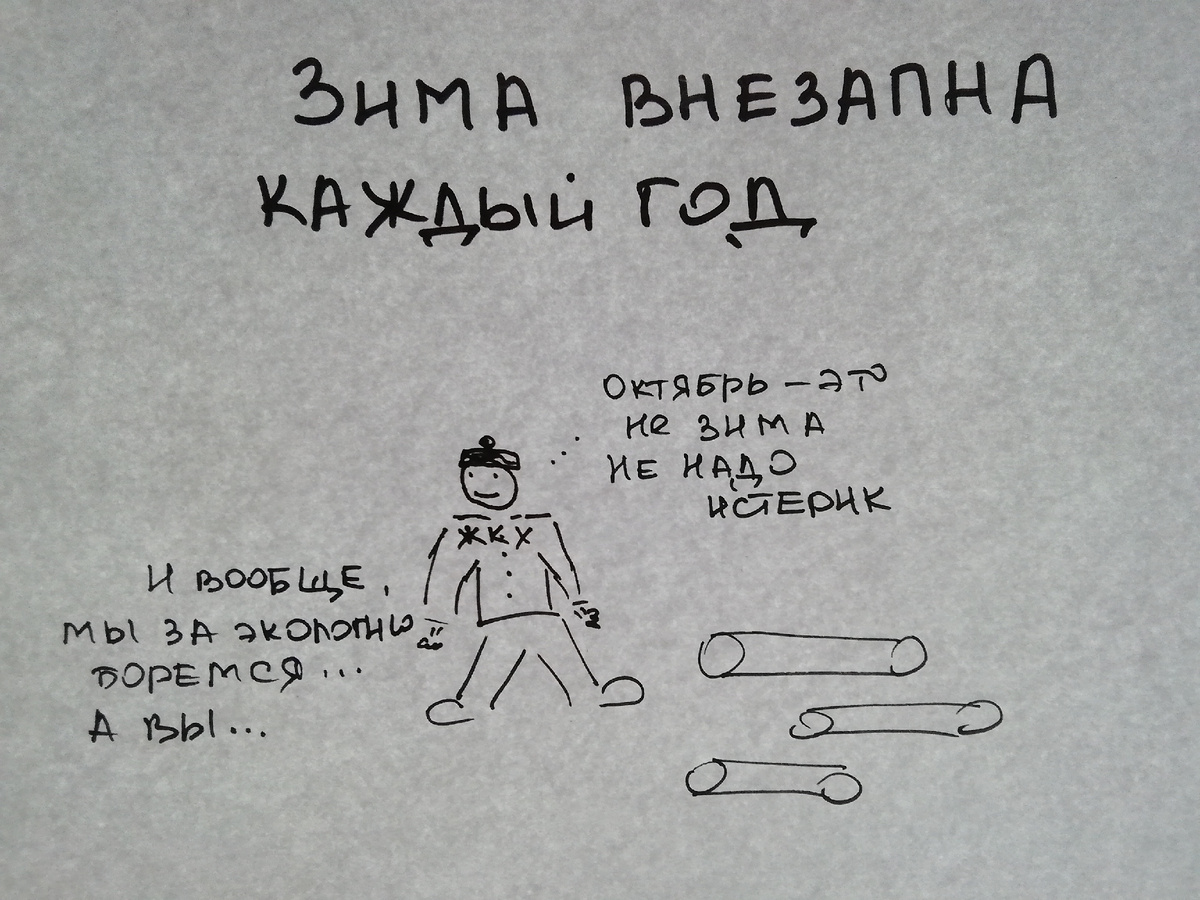 ЗИМА ВНЕЗАПНА
КАЖДЫЙ ГОД
ОКТЯБРЬ – ЭТО
НЕ ЗИМА
НЕ НАДО
ИСТЕРИК
ЖКХ
И ВООБЩЕ,
МЫ ЗА ЭКОЛОГИЮ
БОРЕМСЯ...
А ВЫ...